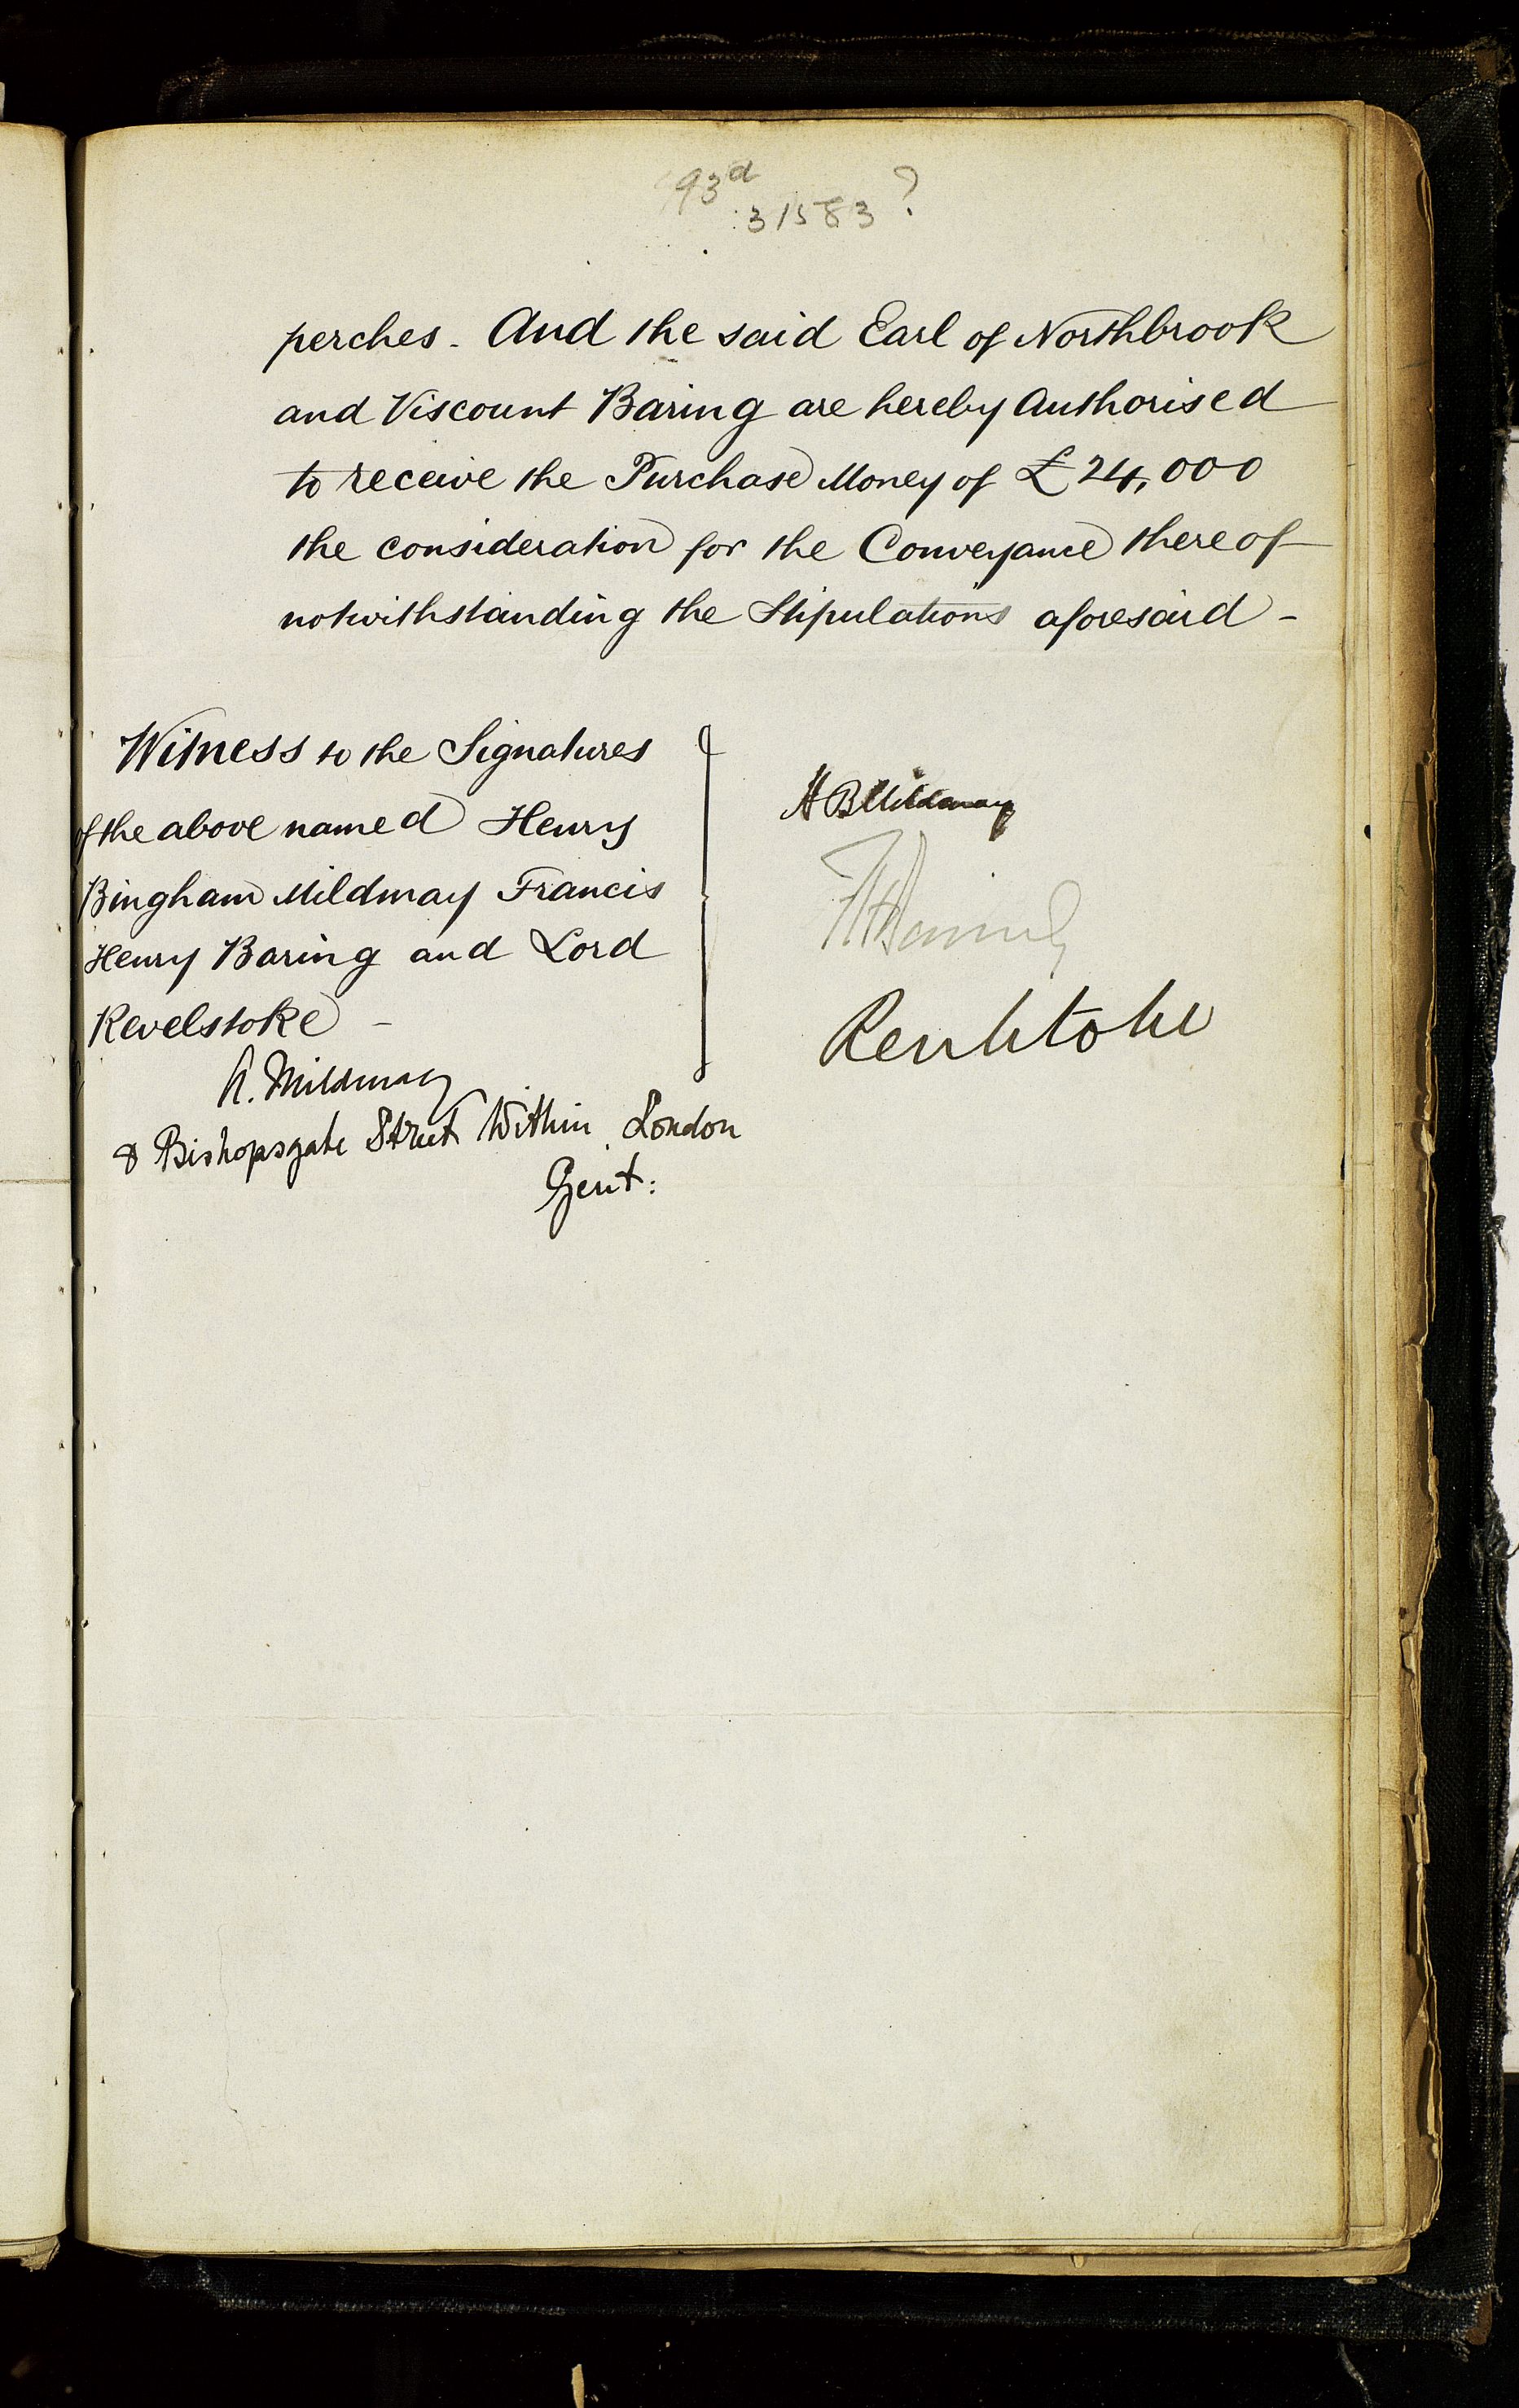 93d
31583 ?
perches - And the said Earl of Northbrook
and Viscount Baring are hereby Authorised
to receive the Purchase Money of £24,000
the consideration for the Conveyance thereof
notwithstanding the Stipulations aforesaid -
Witness to the Signatures
of the above named Henry
Bingham Mildmay Francis
Henry Baring and Lord
Revelstoke -
A. Mildmay
8 Bishopsgate Street Within London
Gent:
H B Mildmay
F H Baring
Revelstoke